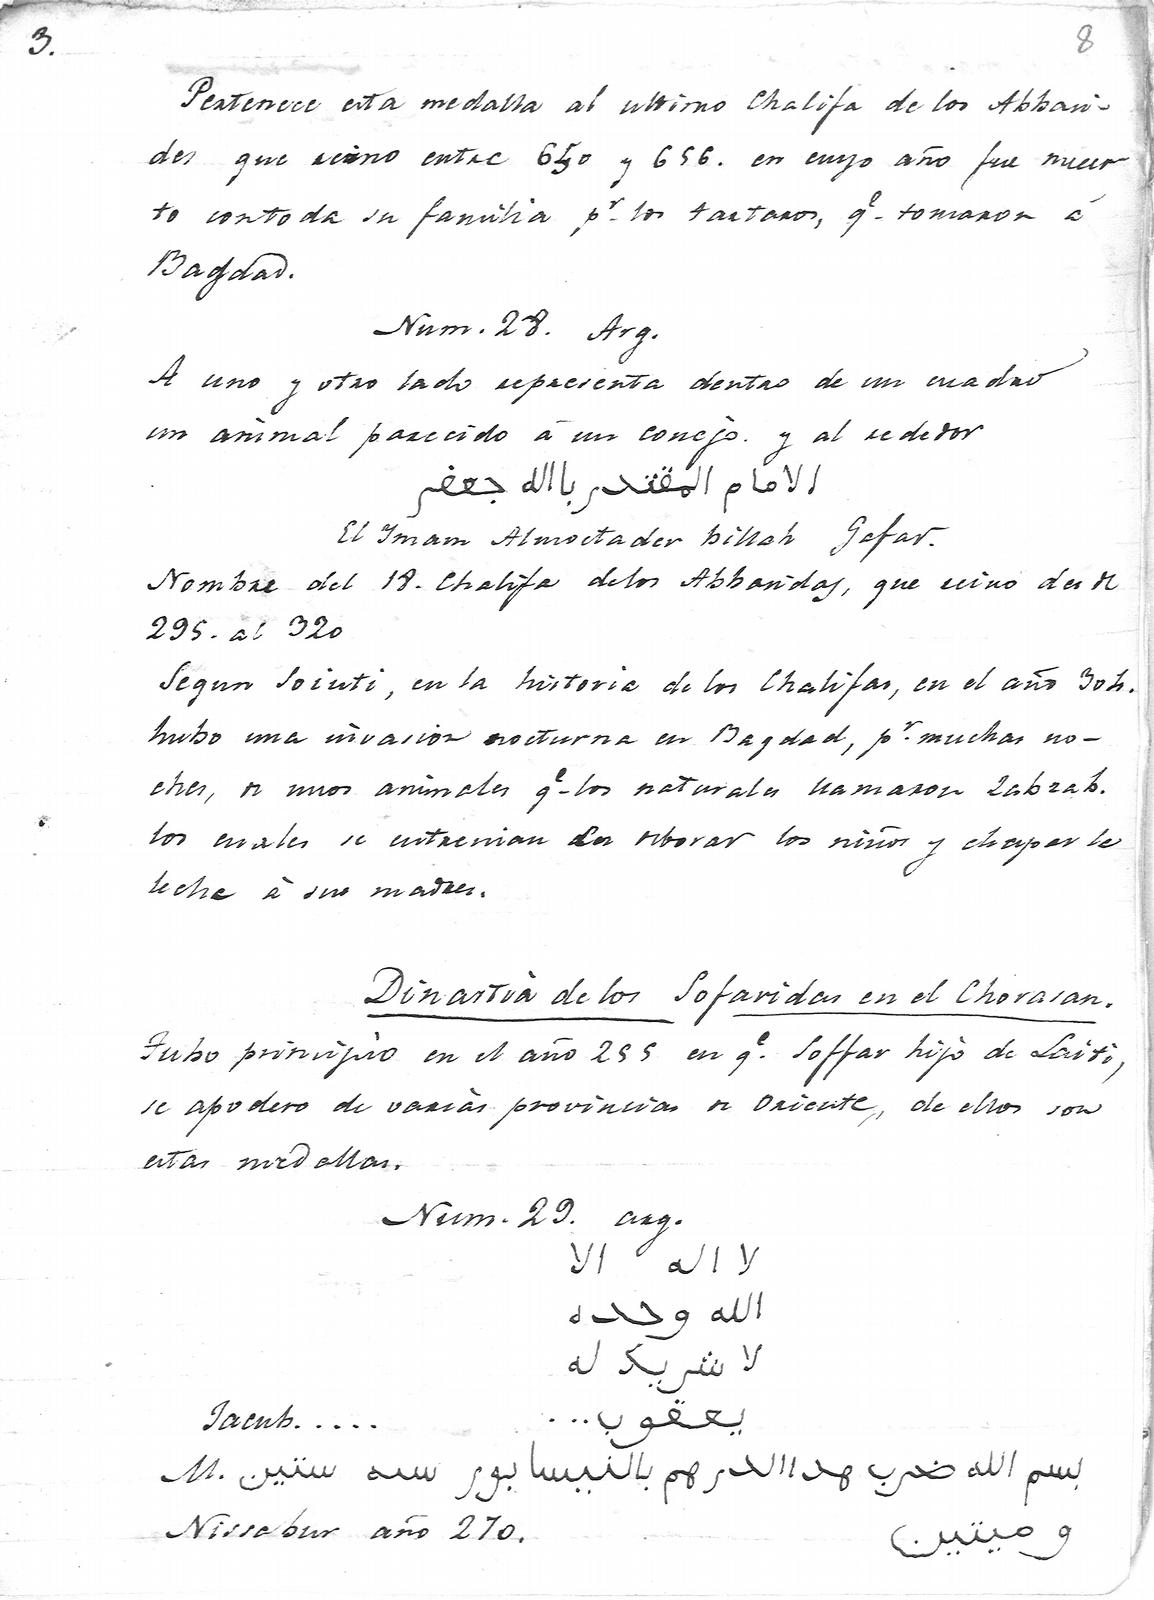 3.
8
Pertenece esta medalla al ultimo Chalifa de los Abbasi-
des que reino entre 640 y 656. en cuyo año fue muer
to con toda su familia pr. los tartaros, qe. tomaron á
Bagdad.
Num. 28. Arg.
A uno y otro lado representa dentro de un cuadro
un animal parecido á un conejo. y al rededor
الامام المقتدر باالله جعفر
El Imam Almoctader billah Gafar.
Nombre del 18. Chalifa de los Abbasidas, que reino desde
295. al 320
Segun Soiuti, en la historia de los Chalifas, en el año 304.
hubo una invasion nocturna en Bagdad, pr. muchas no-
ches, de unos animales qe. los naturales llamaron Zabzab.
los cuales se entrenian en deborar los niños y chupar la
leche á sus madres.
Dinastia de los Sofaridas en el Chorasan.
Tubo principio en el año 255 en qe. Soffar hijo de Laiti,
se apodero de varias provincias de Oriente, de ellos son
estas medallas.
Num. 29. arg.
لا اله الا
الله وحده
لا شريك له
Jacub..... يعقوب...
بسم الله ضرب هداالدرهم بالنيسابور سنه ستين M.
Nissabur año 270. و ميتين